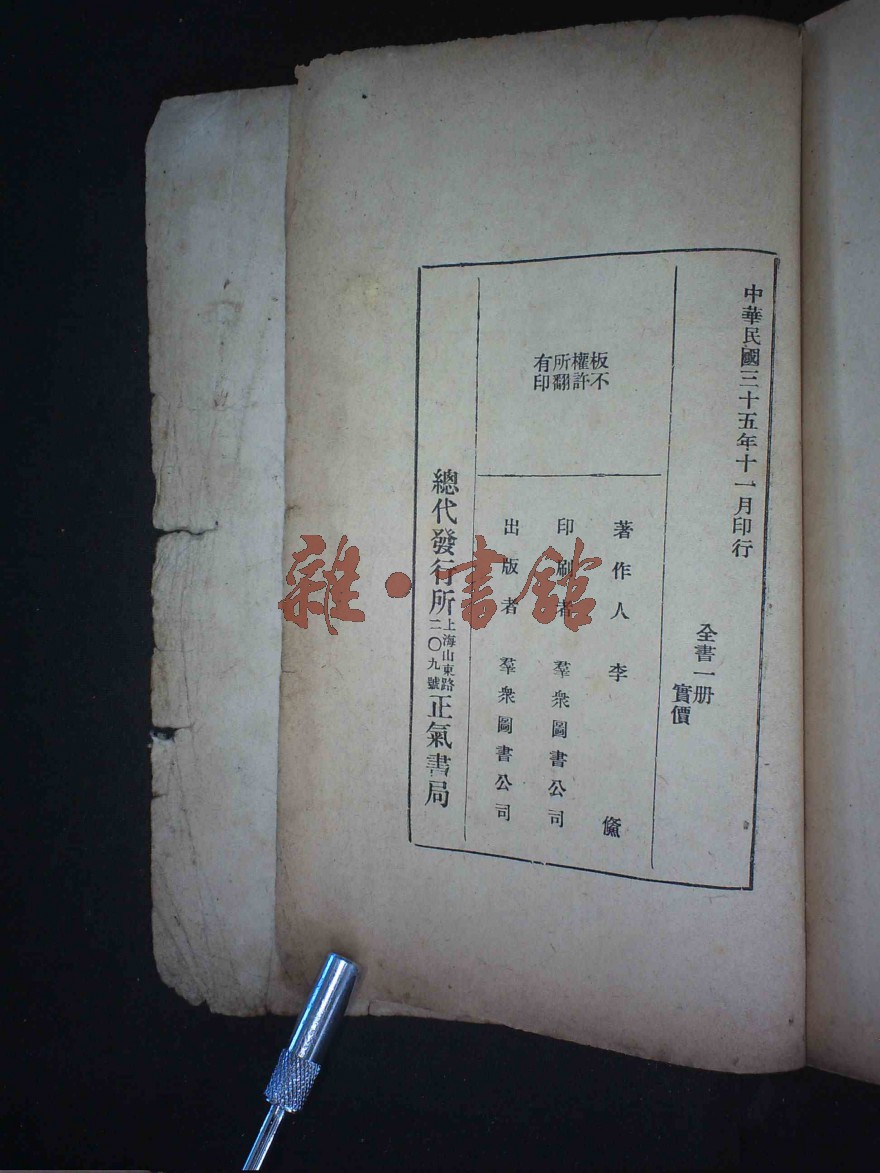 中華民國三十五年十一月印行
全書一册
實價
板權所有
不許翻印
著作人 李
印刷者 羣衆圖書公司
出版者 羣衆圖書公司
總代發行所 上海山東路二〇九號 正氣書局
雜·書館